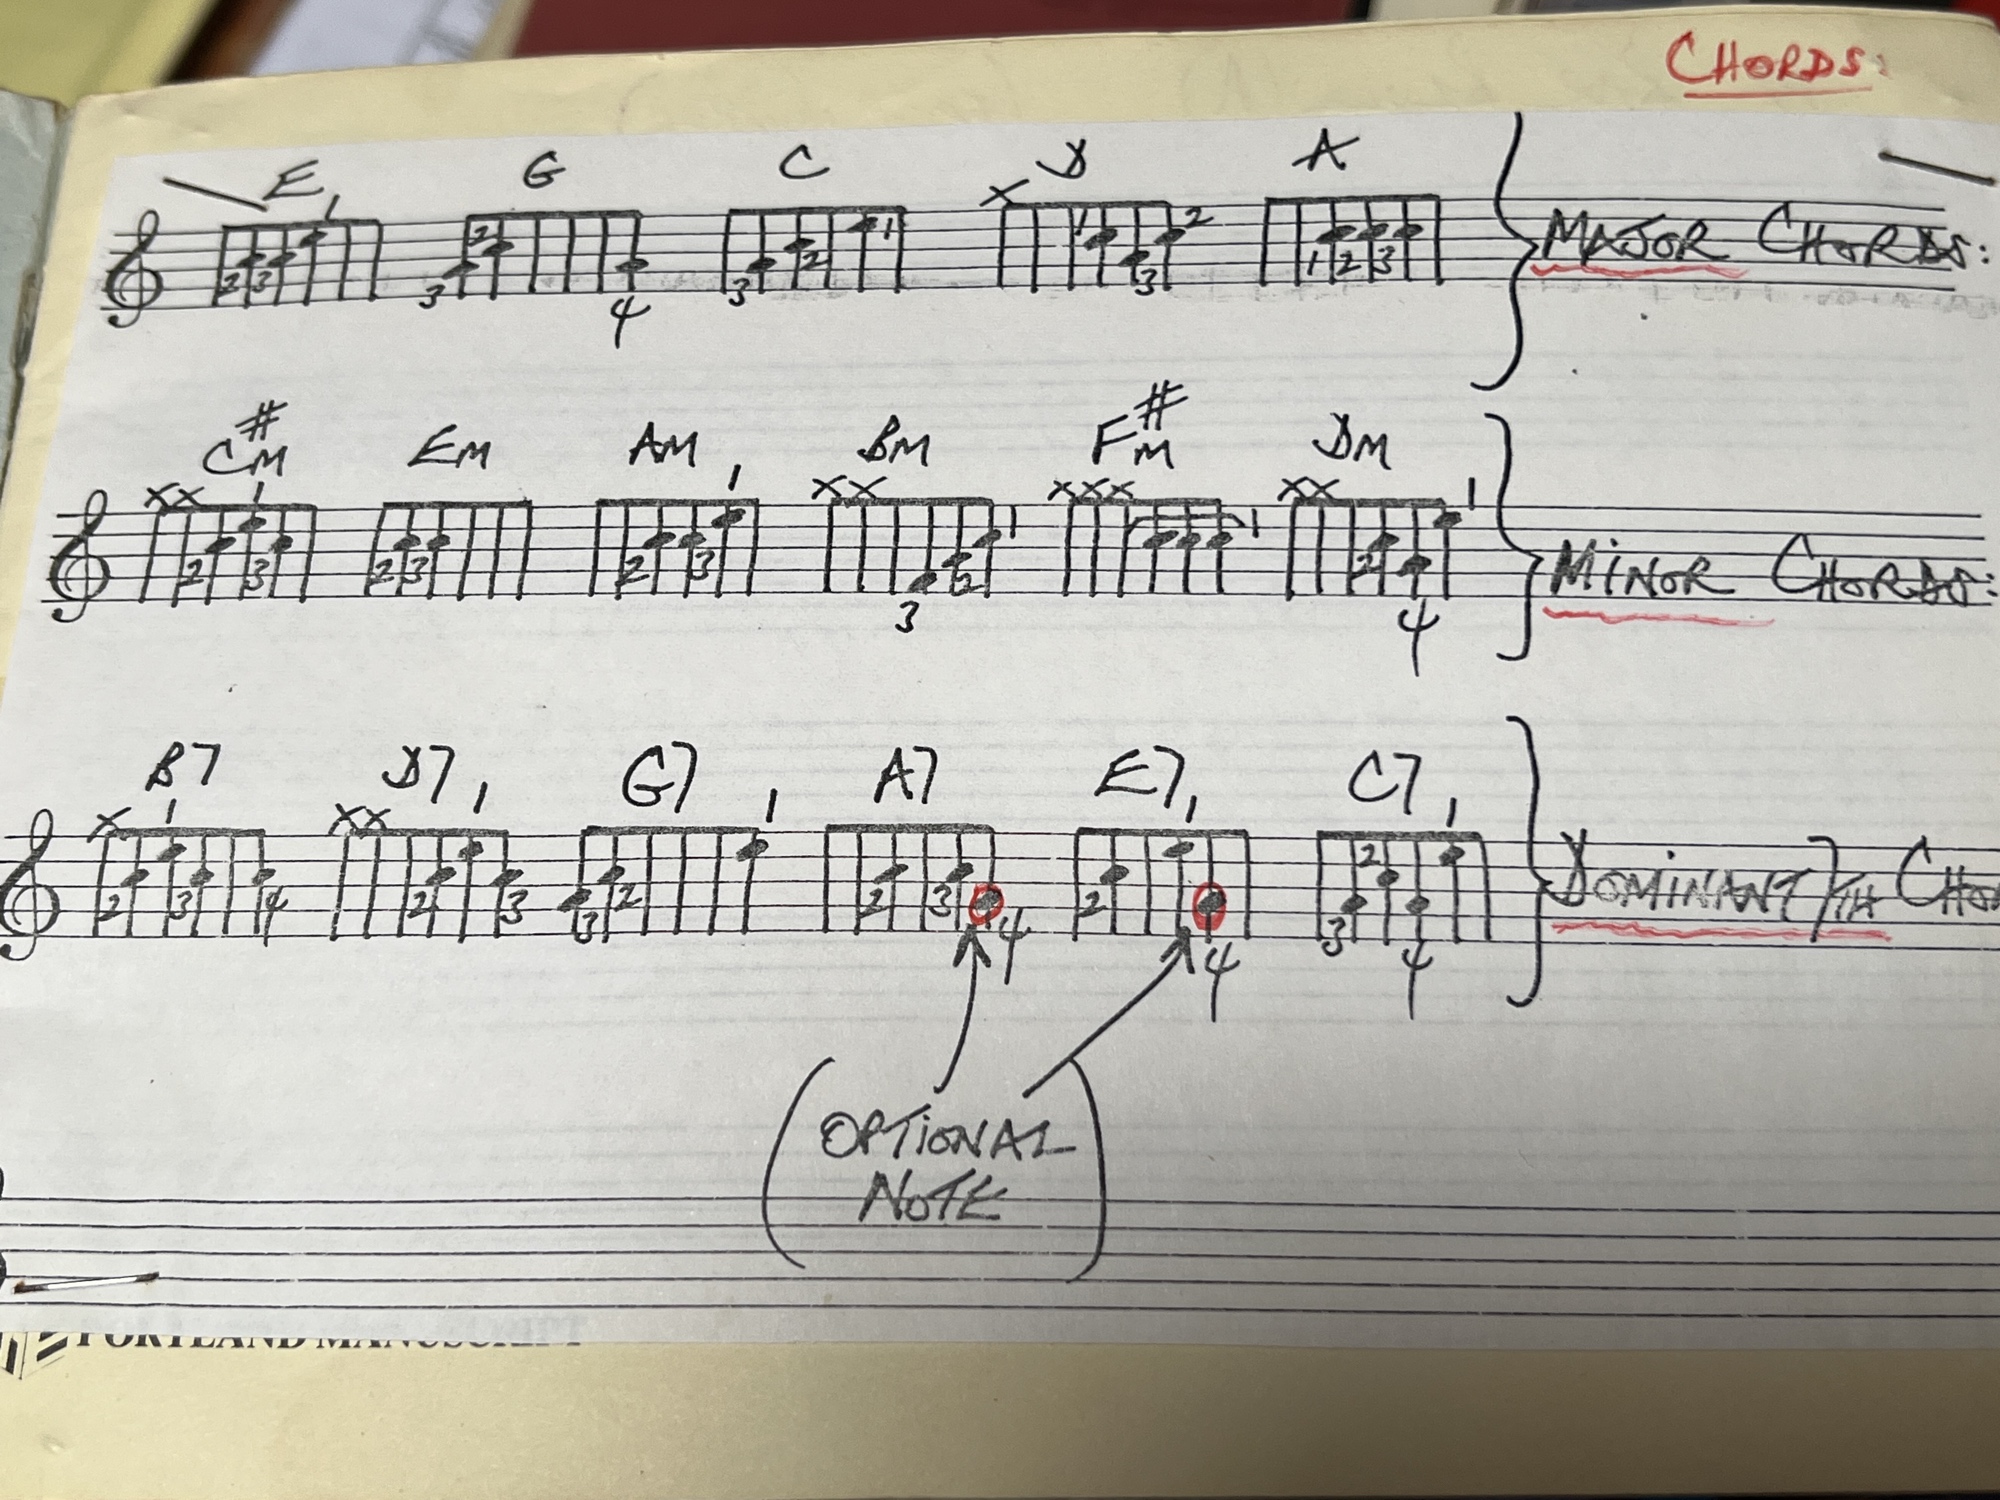 CHORDS:
E G C D A
1 X
2 1 2 1
2 3 3 2 3 3 1 2 3
4
MAJOR CHORDS:
C#M EM AM BM F#M DM
XX 1 1 XX XXX XX 1
1 1
2 3 2 3 2 3 2 2
3 4
MINOR CHORDS:
B7 D7 G7 A7 E7 C7
X 1 XX 1 1 1 1
2
2 3 4 2 3 3 2 2 3 4 2 3
4 4
DOMINANT 7TH
OPTIONAL
NOTE
PORTLAND MANUSCRIPT